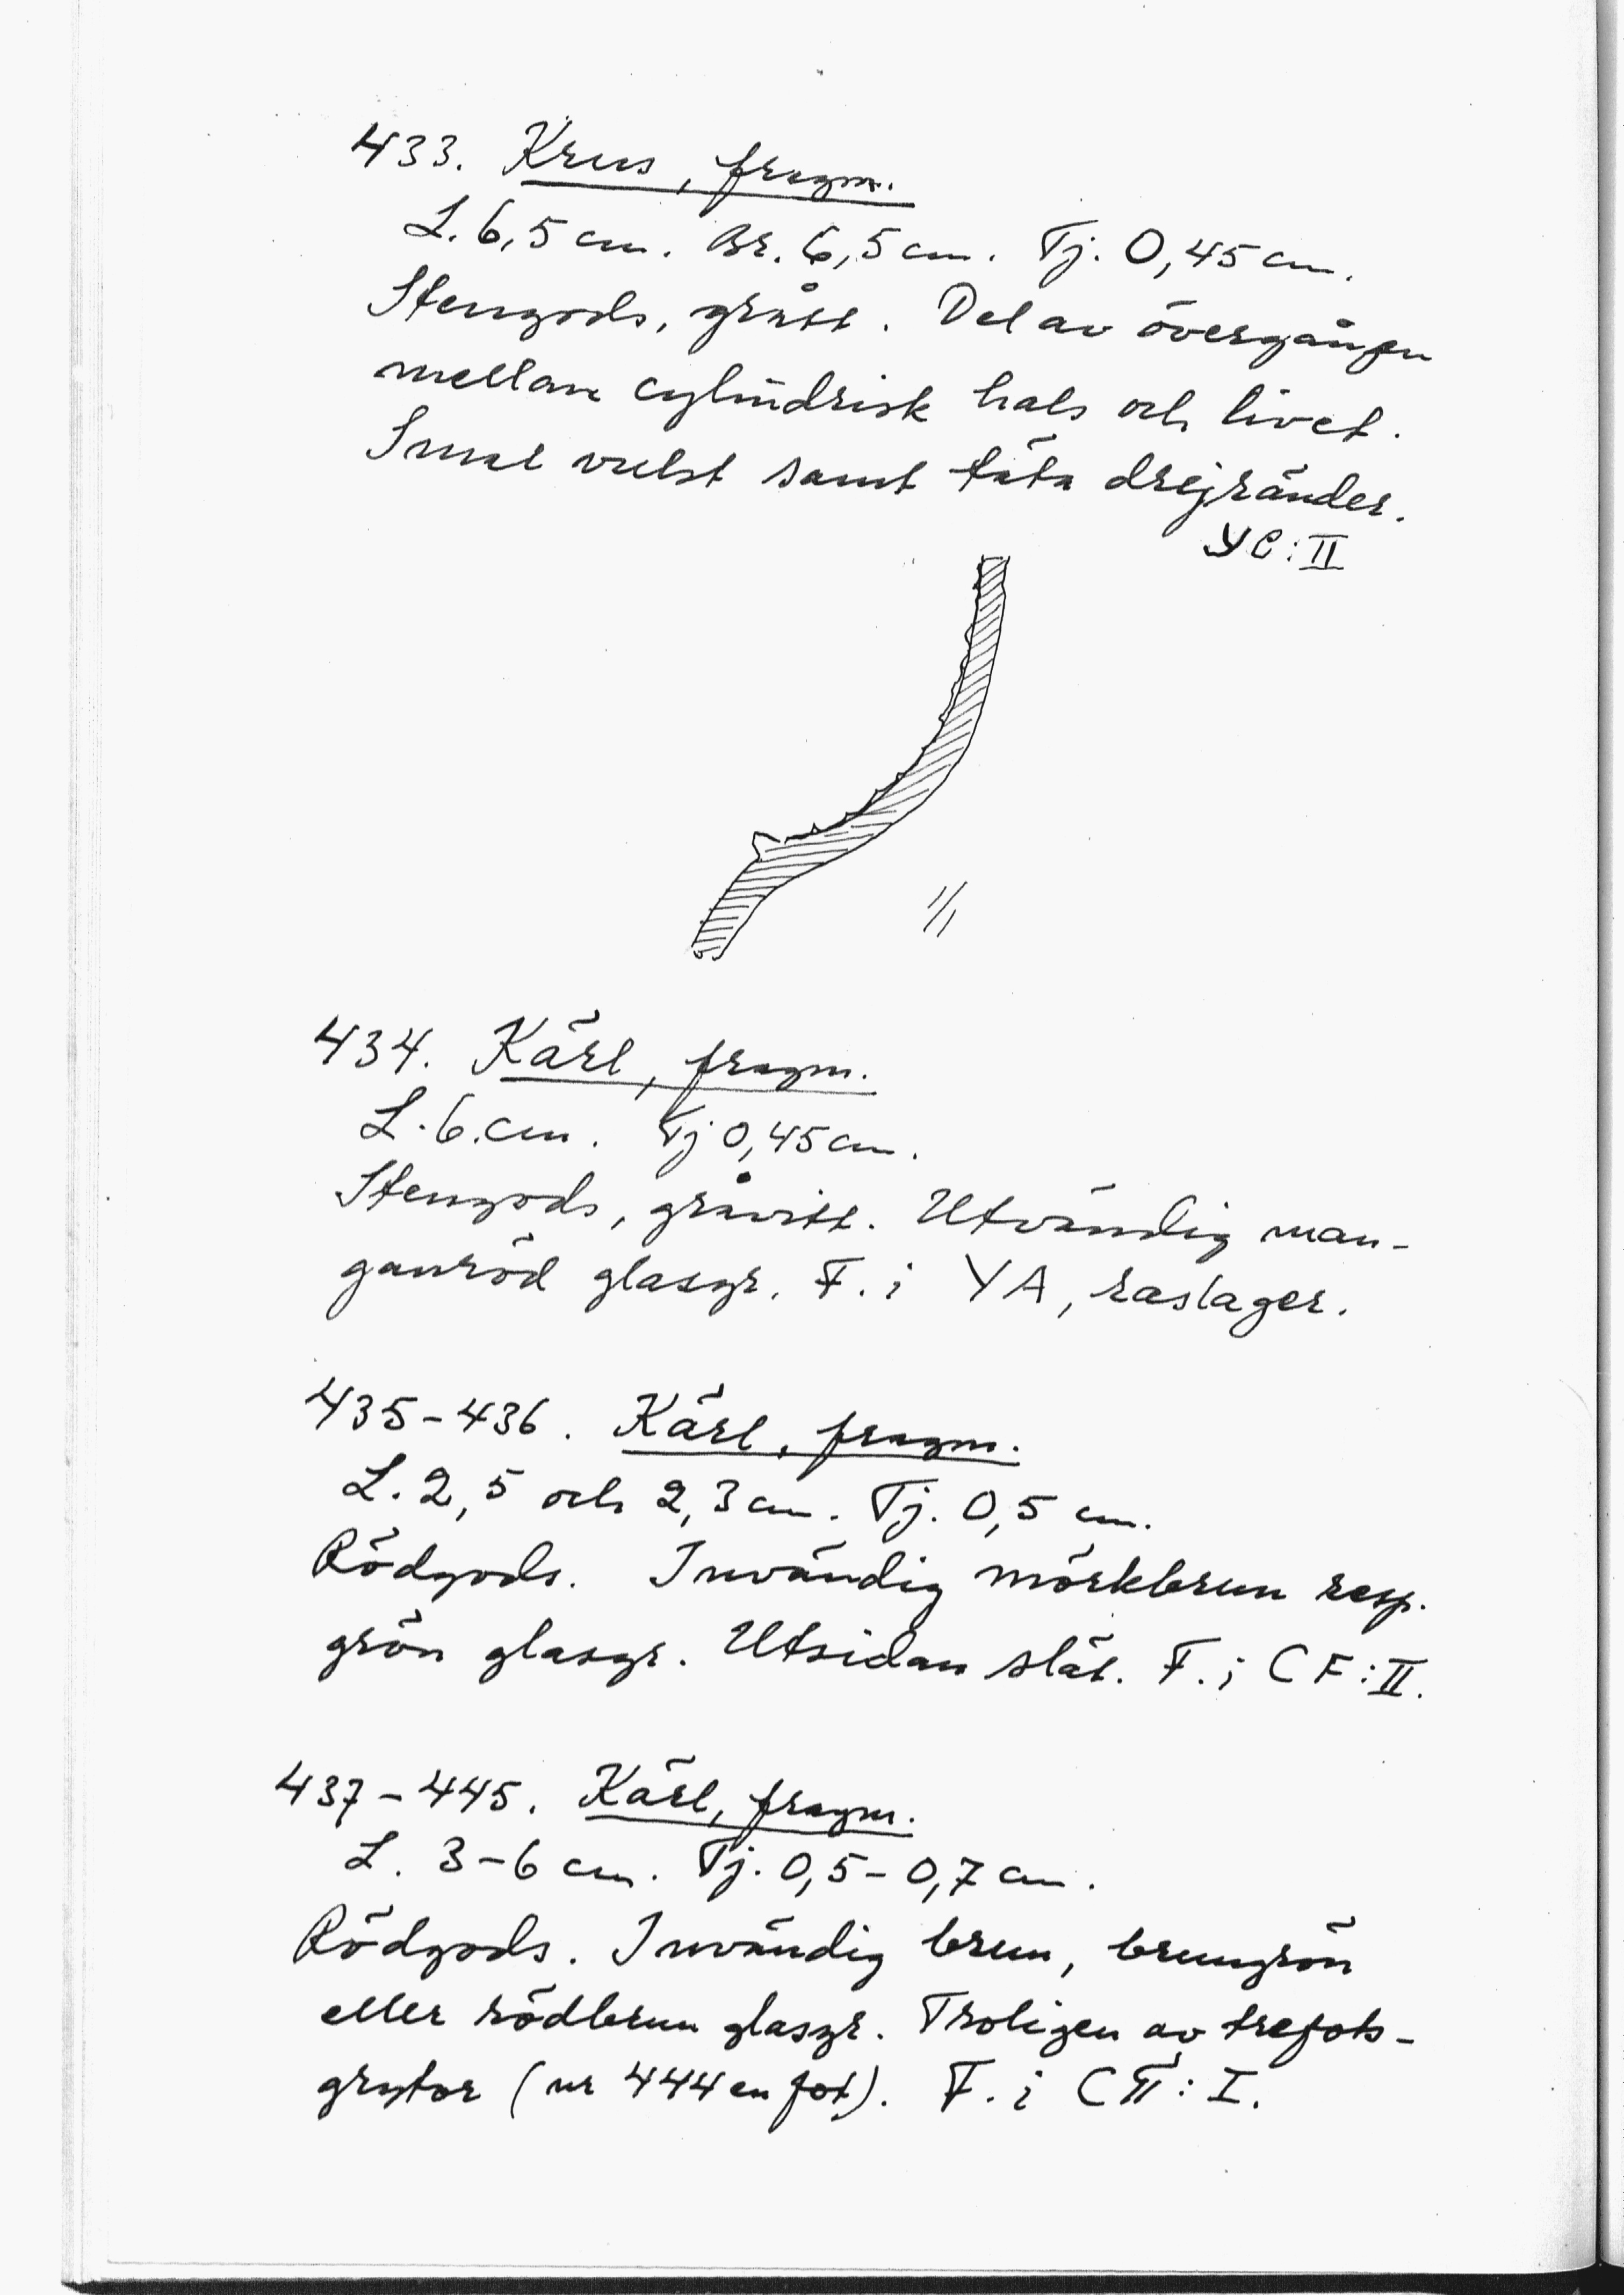 433. Krus, fragm.
L. 6,5 cm. Br. 6,5 cm. Tj. 0,45 cm.
Stengods, grått. Del av övergången
mellan cylindrisk hals och livet.
Smal vulst samt täta drejränder.
YC:II
1/1
434. Kärl, fragm.
L. 6. cm. Tj 0,45 cm.
Stengods, gråvitt. Utvändig man-
ganröd glasyr. F. i YA, raslager.
435-436. Kärl, fragm.
L. 2,5 och 2,3 cm. Tj. 0,5 cm.
Rödgods. Invändig mörkbrun resp.
grön glasyr. Utsidan slät. F. i CF:II.
437-445. Kärl, fragm.
L. 3-6 cm. Tj. 0,5-0,7 cm.
Rödgods. Invändig brun, brungrön
eller rödbrun glasyr. Troligen av trefots-
grytor (nr 444 en fot). F. i :I.